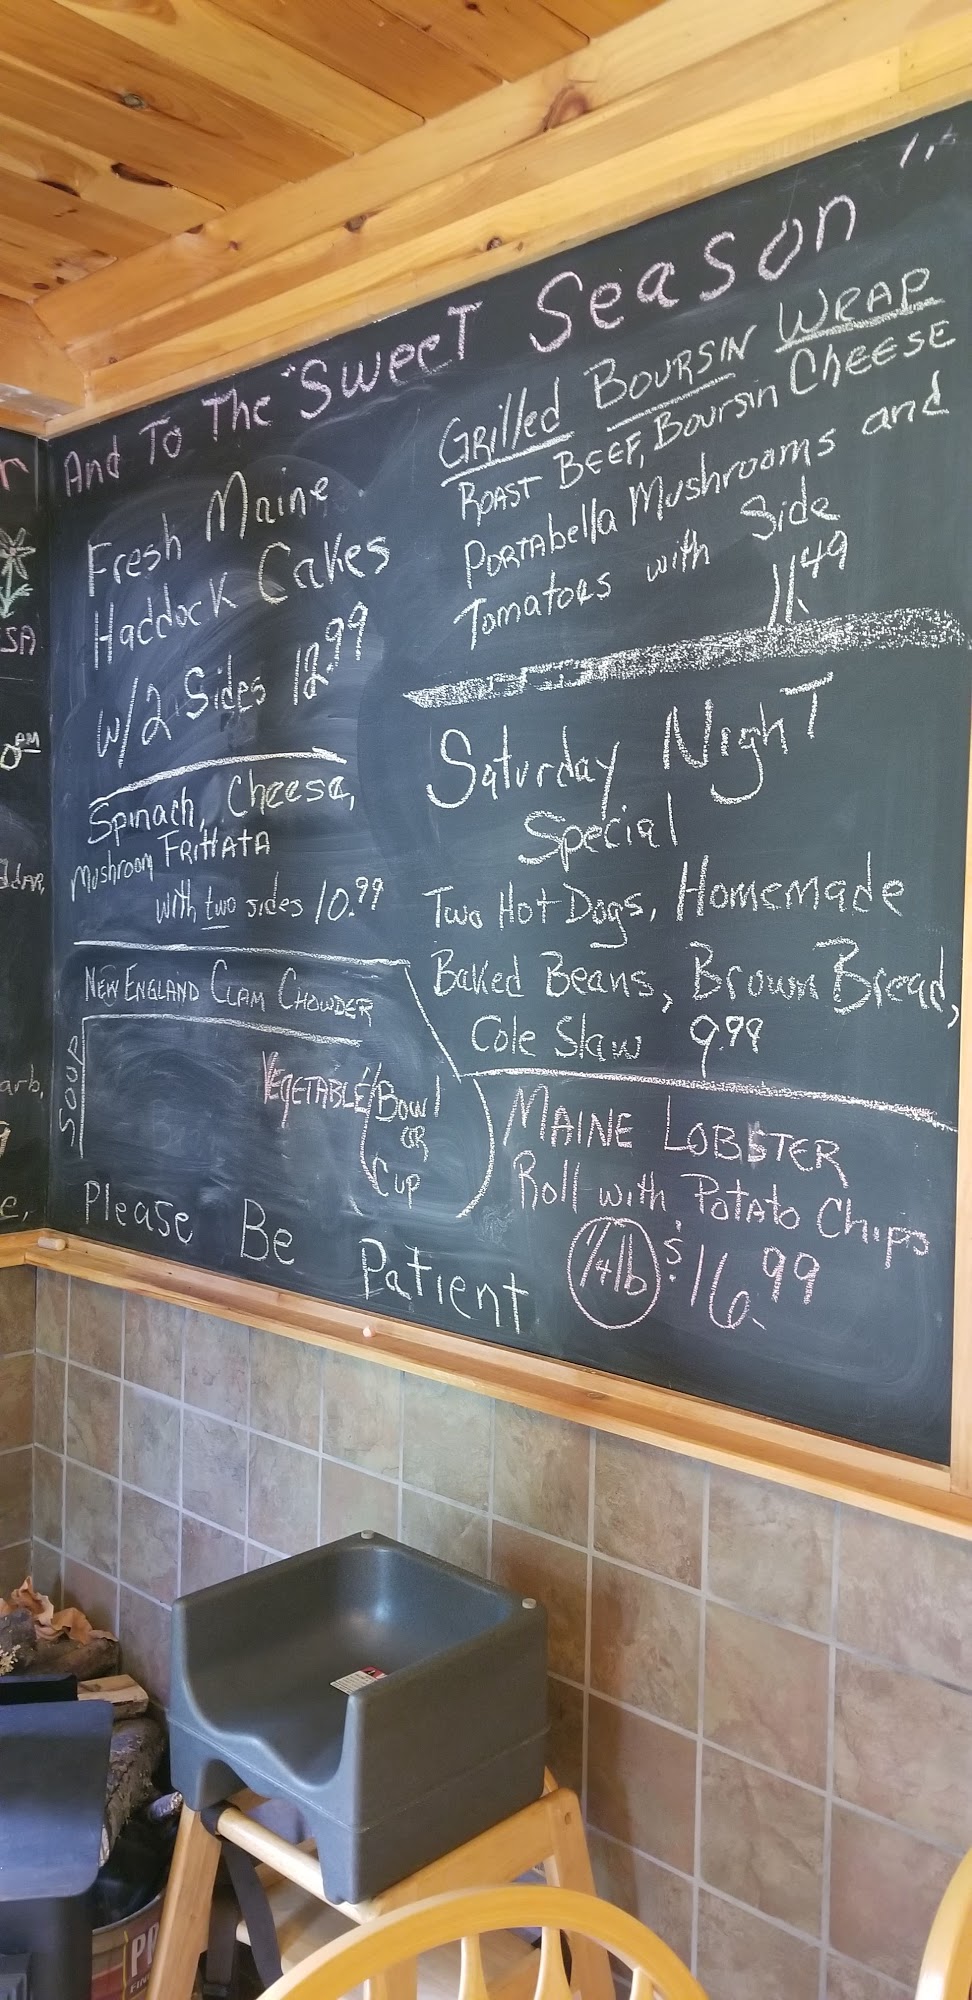 And To The "Sweet Season"
Fresh Maine
Haddock Cakes
w/2 Sides 12.99
Spinach, Cheese,
Mushroom Frittata
with two sides 10.99
New England Clam Chowder
Soup
Vegetable/Bowl
or
Cup
Please Be
Patient
Grilled Boursin Wrap
Roast Beef, Boursin Cheese
Portabella Mushrooms and
Tomatoes with Side
11.49
Saturday Night
Special
Two Hot Dogs, Homemade
Baked Beans, Brown Bread,
Cole Slaw 9.99
Maine Lobster
Roll with Potato Chips
1/4 lb $16.99
PR